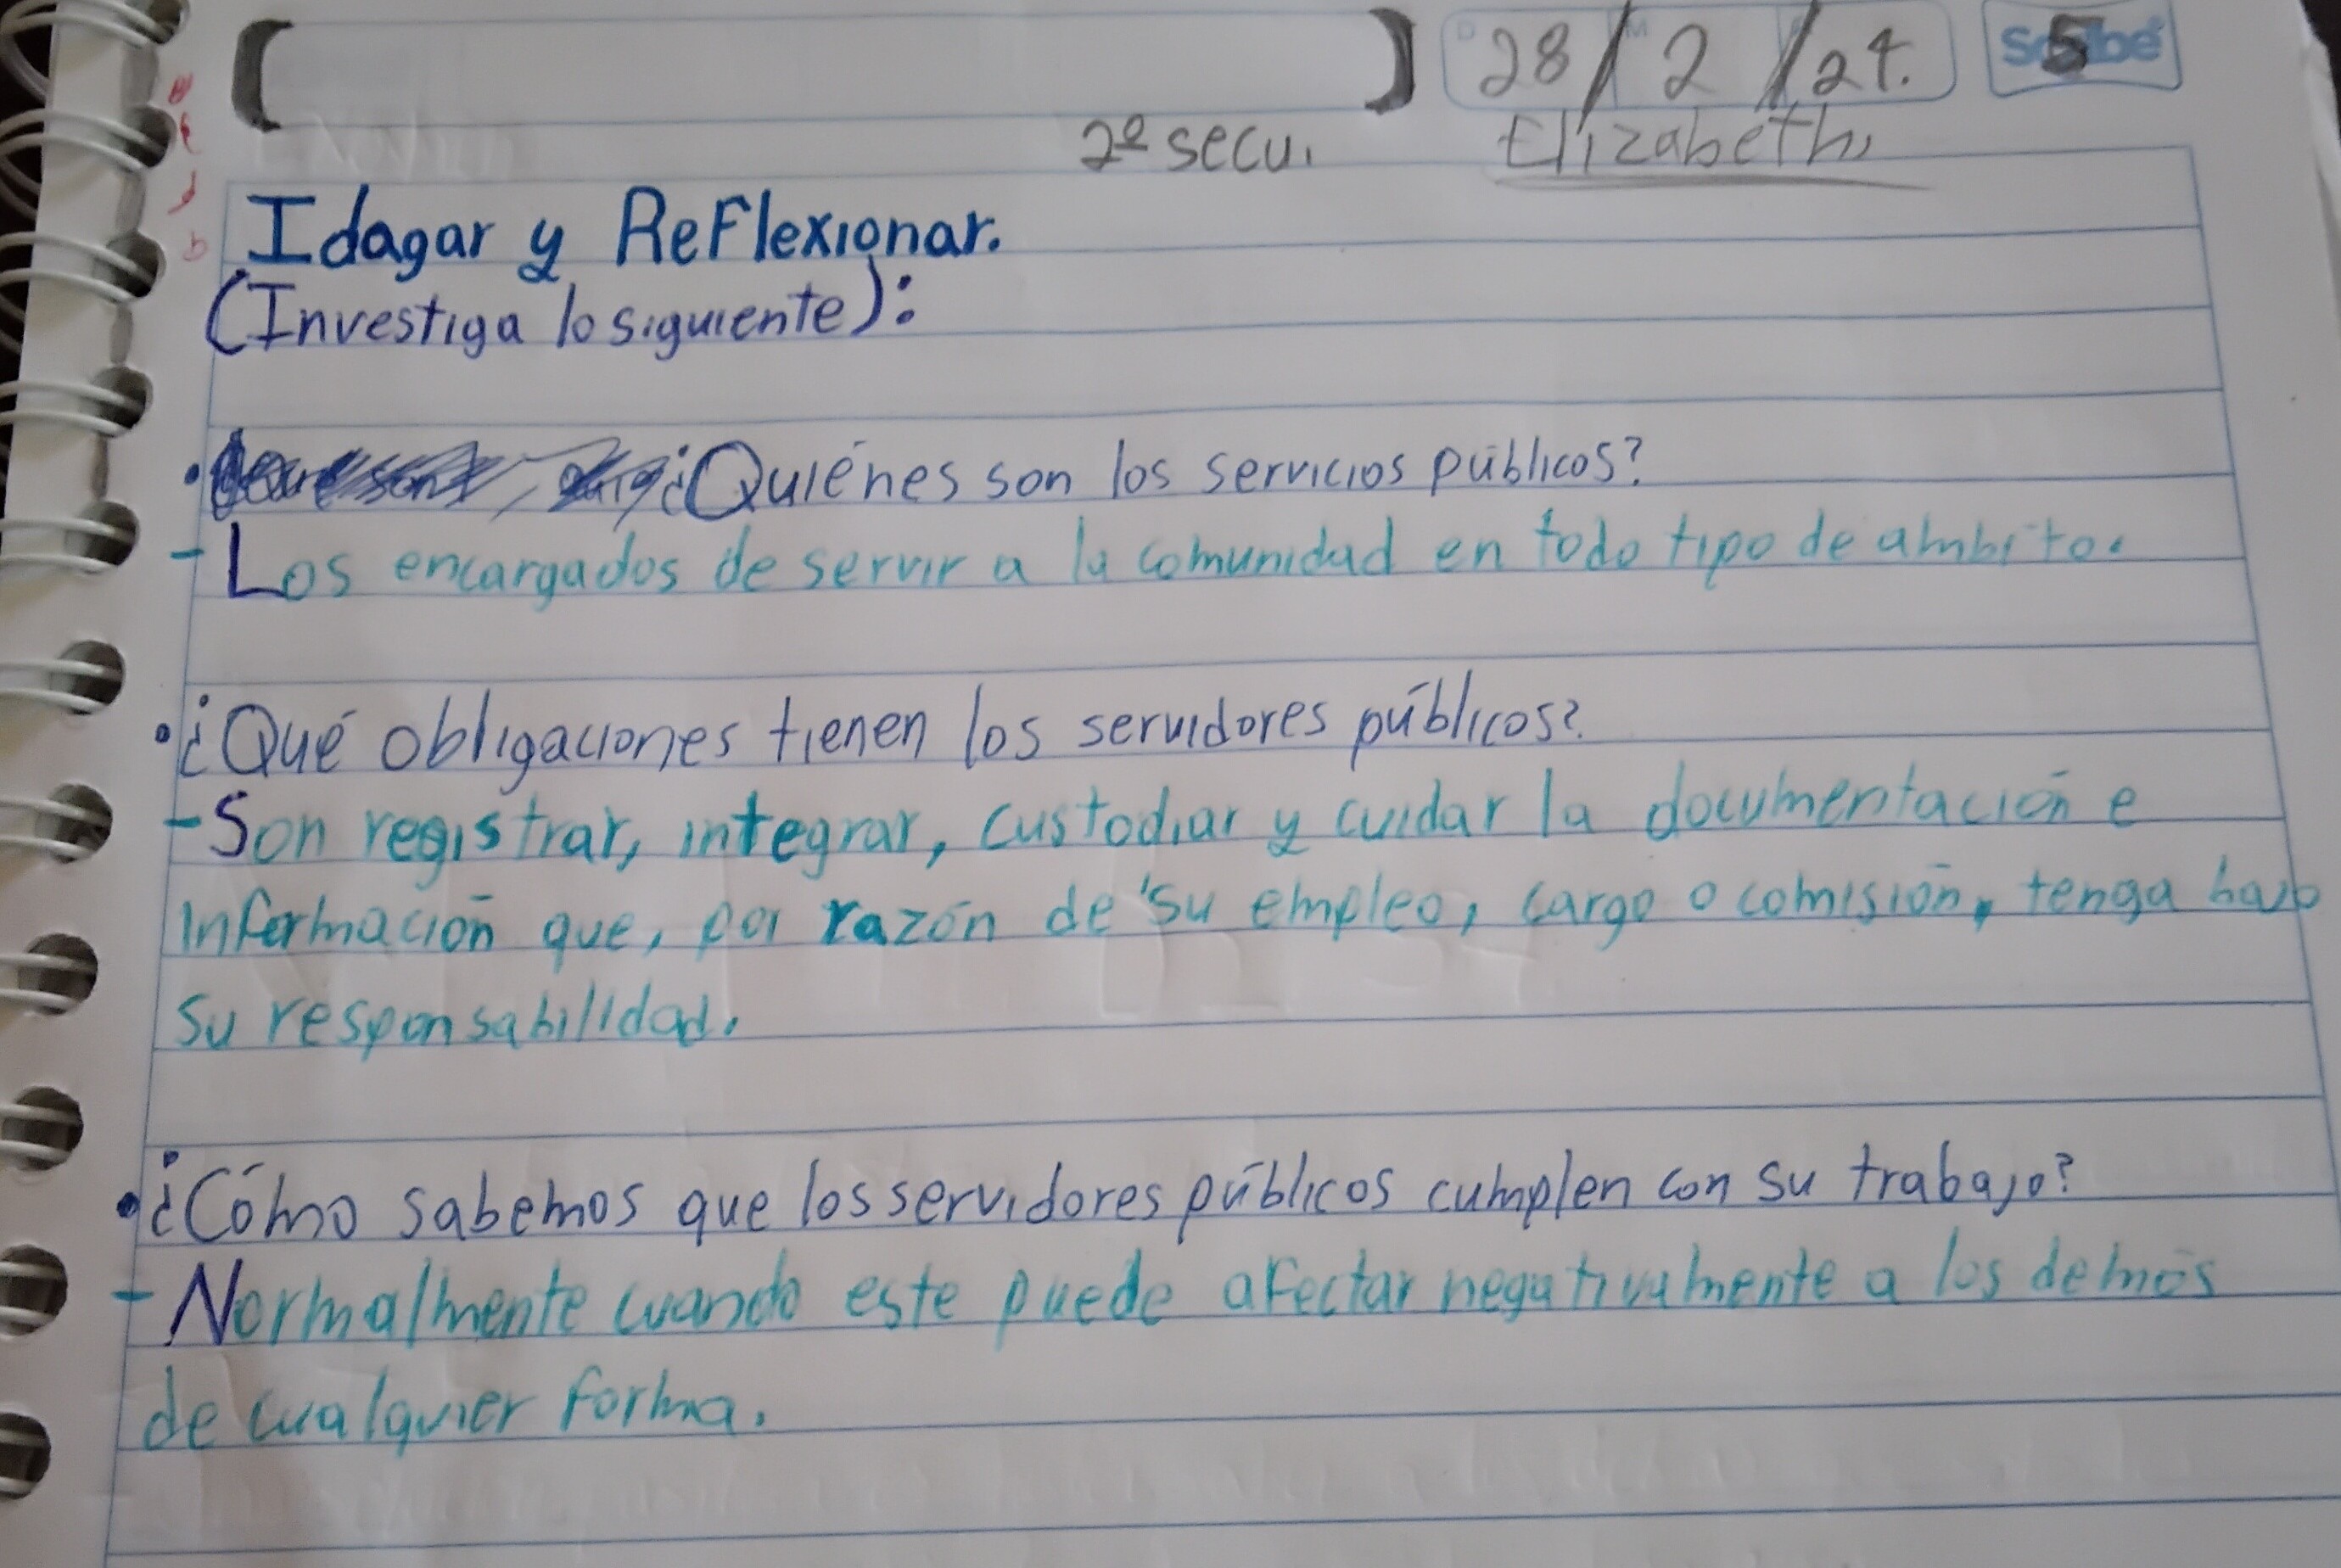 28/2/24.
5
2º secu. Elizabeth,
Idagar y Reflexionar.
(Investiga lo siguiente):
• ¿Quiénes son los servicios públicos?
- Los encargados de servir a la comunidad en todo tipo de ambito.
• ¿Qué obligaciones tienen los servidores públicos?
- Son registrar, integrar, custodiar y cuidar la documentación e
información que, por razón de su empleo, cargo o comisión, tenga bajo
su responsabilidad.
• ¿Cómo sabemos que los servidores públicos cumplen con su trabajo?
- Normalmente cuando este puede afectar negativamente a los demás
de cualquier forma.